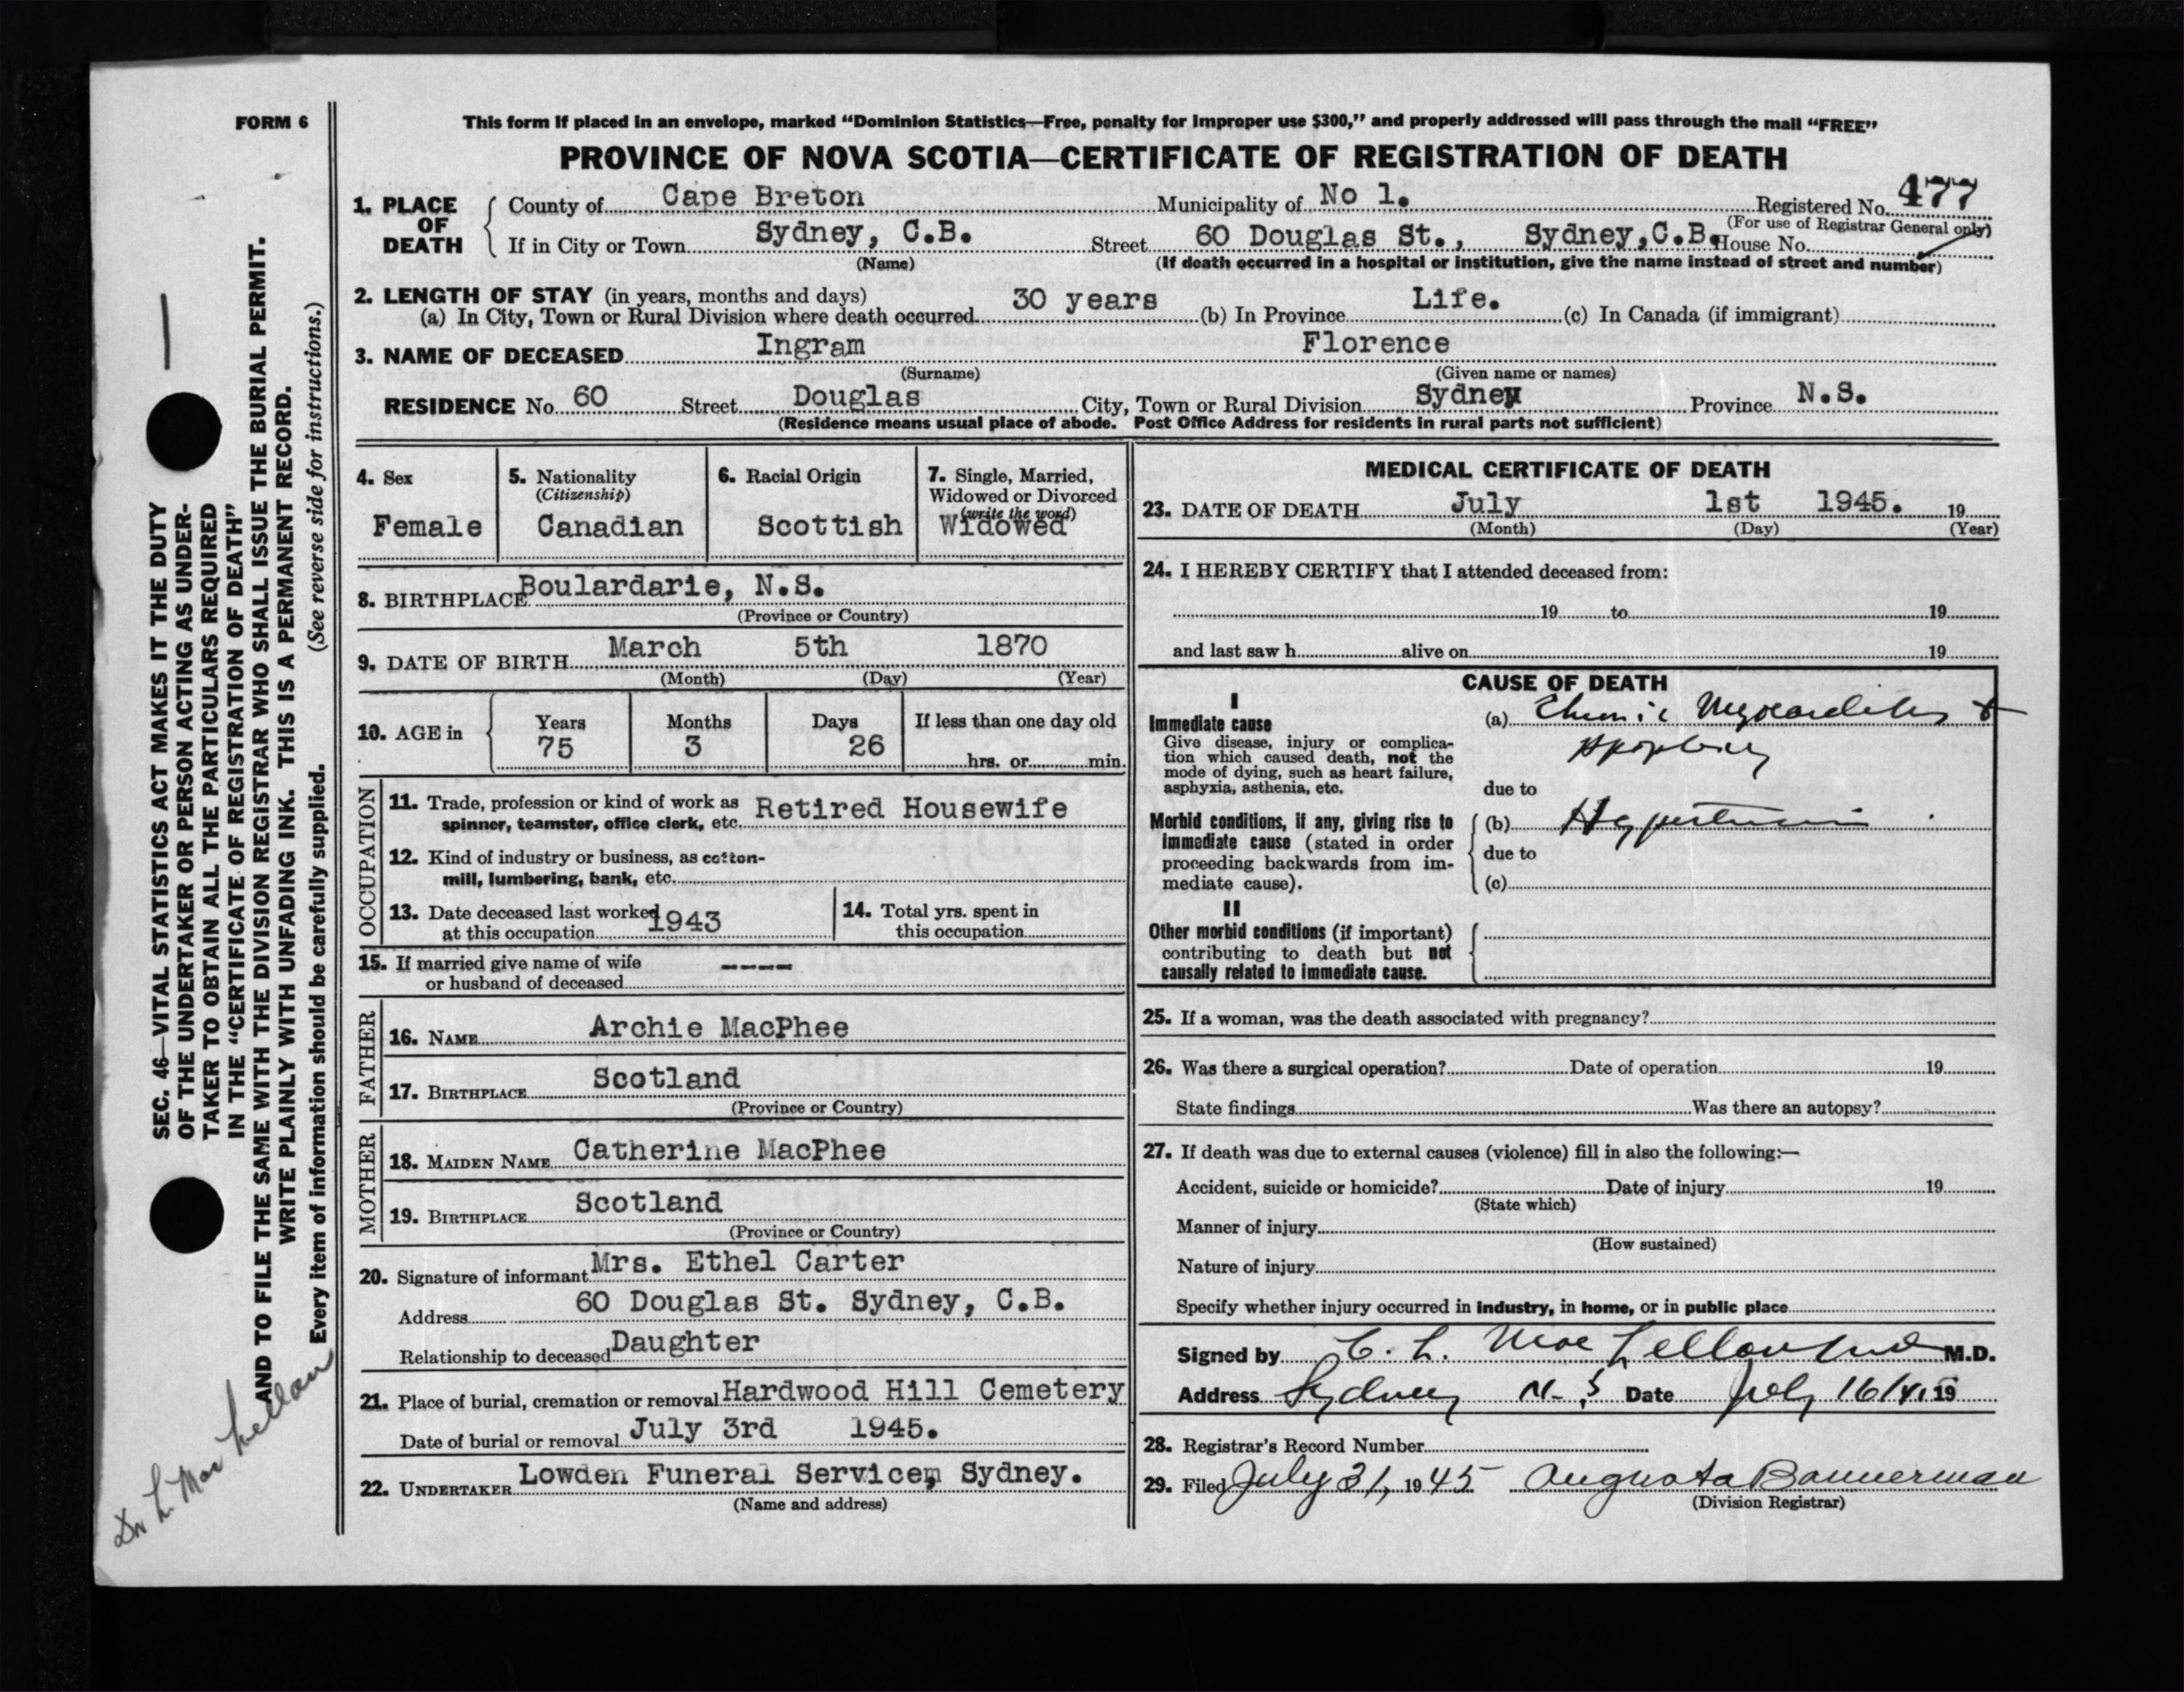 FORM 6
This form if placed in an envelope, marked “Dominion Statistics—Free, penalty for improper use $300,” and properly addressed will pass through the mail “FREE”
PROVINCE OF NOVA SCOTIA—CERTIFICATE OF REGISTRATION OF DEATH
1. PLACE OF DEATH
County of Cape Breton Municipality of No 1. Registered No. 477
(For use of Registrar General only)
If in City or Town Sydney, C.B. Street 60 Douglas St., Sydney, C.B. House No.
(Name) (If death occurred in a hospital or institution, give the name instead of street and number)
2. LENGTH OF STAY (in years, months and days)
(a) In City, Town or Rural Division where death occurred 30 years (b) In Province Life. (c) In Canada (if immigrant)
3. NAME OF DECEASED Ingram Florence
(Surname) (Given name or names)
RESIDENCE No. 60 Street Douglas City, Town or Rural Division Sydney Province N.S.
(Residence means usual place of abode. Post Office Address for residents in rural parts not sufficient)
4. Sex
Female
5. Nationality
(Citizenship)
Canadian
6. Racial Origin
Scottish
7. Single, Married,
Widowed or Divorced
(write the word)
Widowed
8. BIRTHPLACE Boulardarie, N.S.
(Province or Country)
9. DATE OF BIRTH March 5th 1870
(Month) (Day) (Year)
10. AGE in
Years Months Days If less than one day old
75 3 26
hrs. or min.
OCCUPATION
11. Trade, profession or kind of work as
spinner, teamster, office clerk, etc. Retired Housewife
12. Kind of industry or business, as cotton-
mill, lumbering, bank, etc.
13. Date deceased last worked
at this occupation 1943
14. Total yrs. spent in
this occupation
15. If married give name of wife
or husband of deceased ----
FATHER
16. NAME Archie MacPhee
17. BIRTHPLACE Scotland
(Province or Country)
MOTHER
18. MAIDEN NAME Catherine MacPhee
19. BIRTHPLACE Scotland
(Province or Country)
20. Signature of informant Mrs. Ethel Carter
Address 60 Douglas St. Sydney, C.B.
Relationship to deceased Daughter
21. Place of burial, cremation or removal Hardwood Hill Cemetery
Date of burial or removal July 3rd 1945.
22. UNDERTAKER Lowden Funeral Service, Sydney.
(Name and address)
MEDICAL CERTIFICATE OF DEATH
23. DATE OF DEATH July 1st 1945. 19
(Month) (Day) (Year)
24. I HEREBY CERTIFY that I attended deceased from:
19 to 19
and last saw h alive on 19
CAUSE OF DEATH
I
Immediate cause
Give disease, injury or complica-
tion which caused death, not the
mode of dying, such as heart failure,
asphyxia, asthenia, etc.
(a) Chronic Myocarditis +
Apoplexy
due to
Morbid conditions, if any, giving rise to
immediate cause (stated in order
proceeding backwards from im-
mediate cause).
(b) Hypertension
due to
(c)
II
Other morbid conditions (if important)
contributing to death but not
causally related to immediate cause.
25. If a woman, was the death associated with pregnancy?
26. Was there a surgical operation? Date of operation 19
State findings Was there an autopsy?
27. If death was due to external causes (violence) fill in also the following:—
Accident, suicide or homicide? Date of injury 19
(State which)
Manner of injury
(How sustained)
Nature of injury
Specify whether injury occurred in industry, in home, or in public place
Signed by C. L. MacLellan M.D.
Address Sydney N.S Date July 16 19
28. Registrar's Record Number
29. Filed July 31, 1945 Augusta Bannerman
(Division Registrar)
SEC. 46—VITAL STATISTICS ACT MAKES IT THE DUTY
OF THE UNDERTAKER OR PERSON ACTING AS UNDER-
TAKER TO OBTAIN ALL THE PARTICULARS REQUIRED
IN THE “CERTIFICATE OF REGISTRATION OF DEATH”
AND TO FILE THE SAME WITH THE DIVISION REGISTRAR WHO SHALL ISSUE THE BURIAL PERMIT.
WRITE PLAINLY WITH UNFADING INK. THIS IS A PERMANENT RECORD.
Every item of information should be carefully supplied. (See reverse side for instructions.)
Dr L. MacLellan